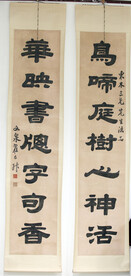 鳥啼庭樹心神活
華映書牕字可香